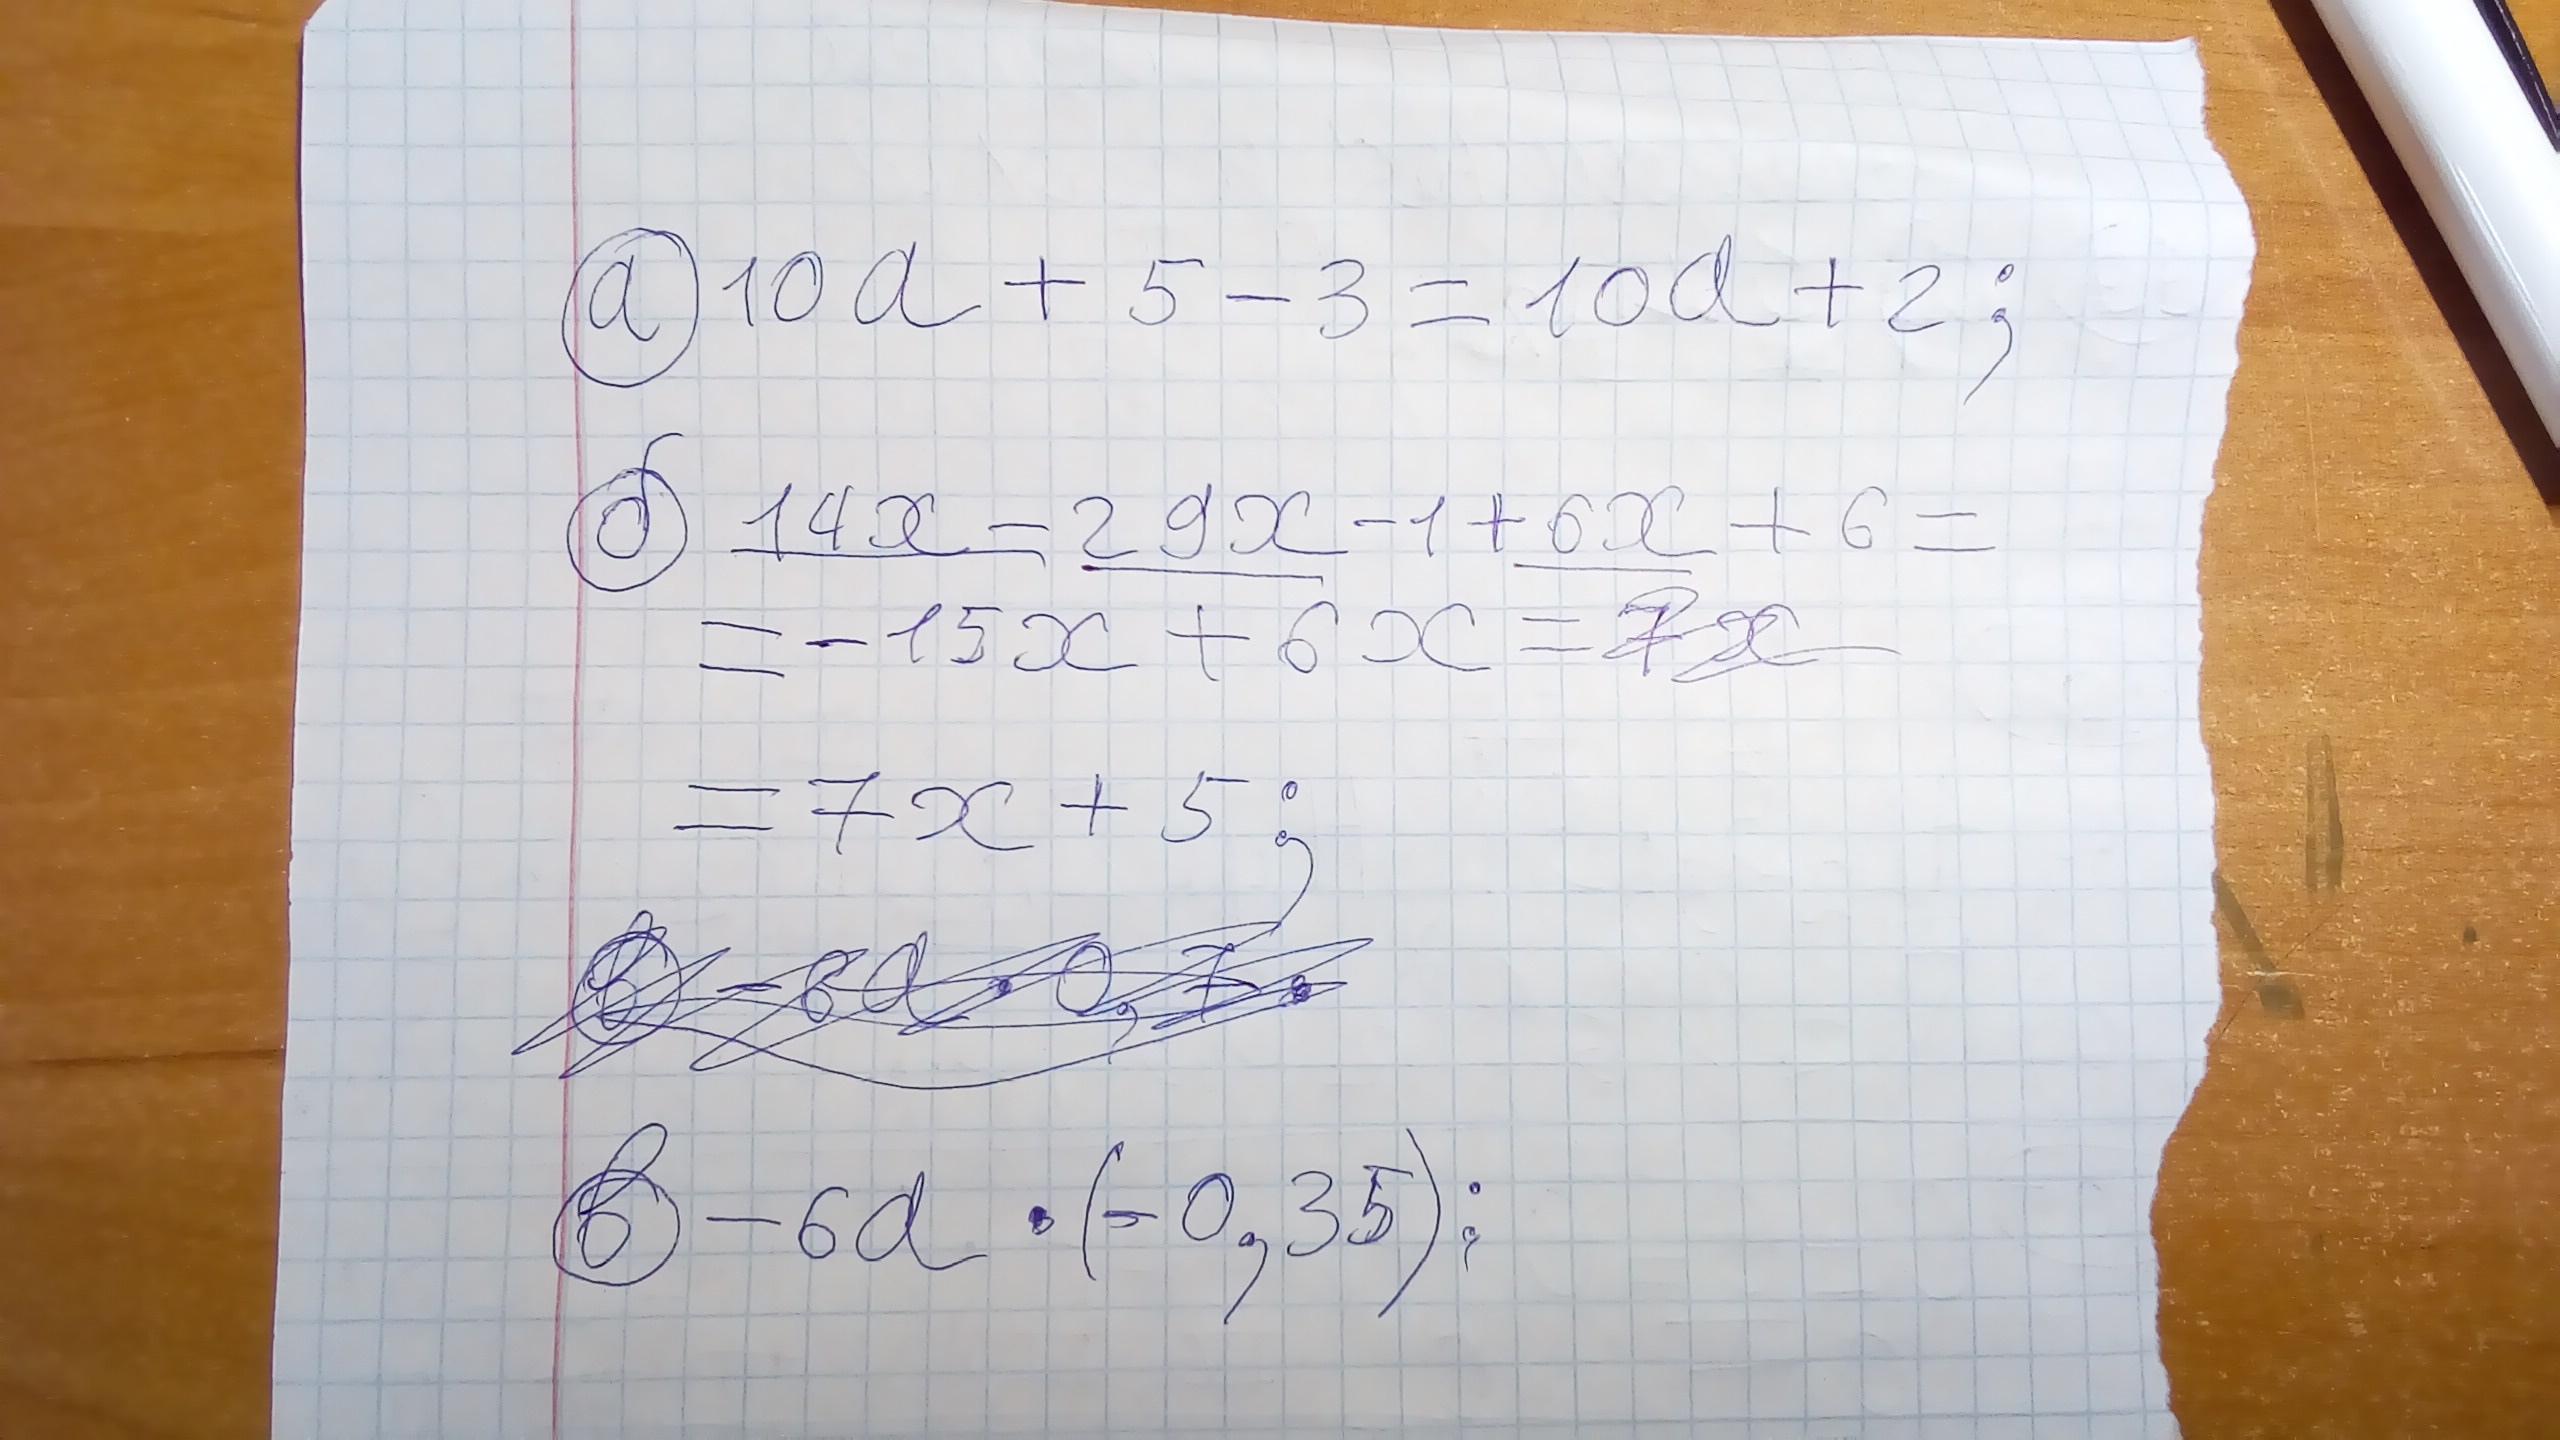 а) 10a + 5 - 3 = 10a + 2;
б) 14x - 29x - 1 + 6x + 6 =
= -15x + 6x = 7x
= 7x + 5;
в) -6a · 0,7 ·
в) -6a · (-0,35);